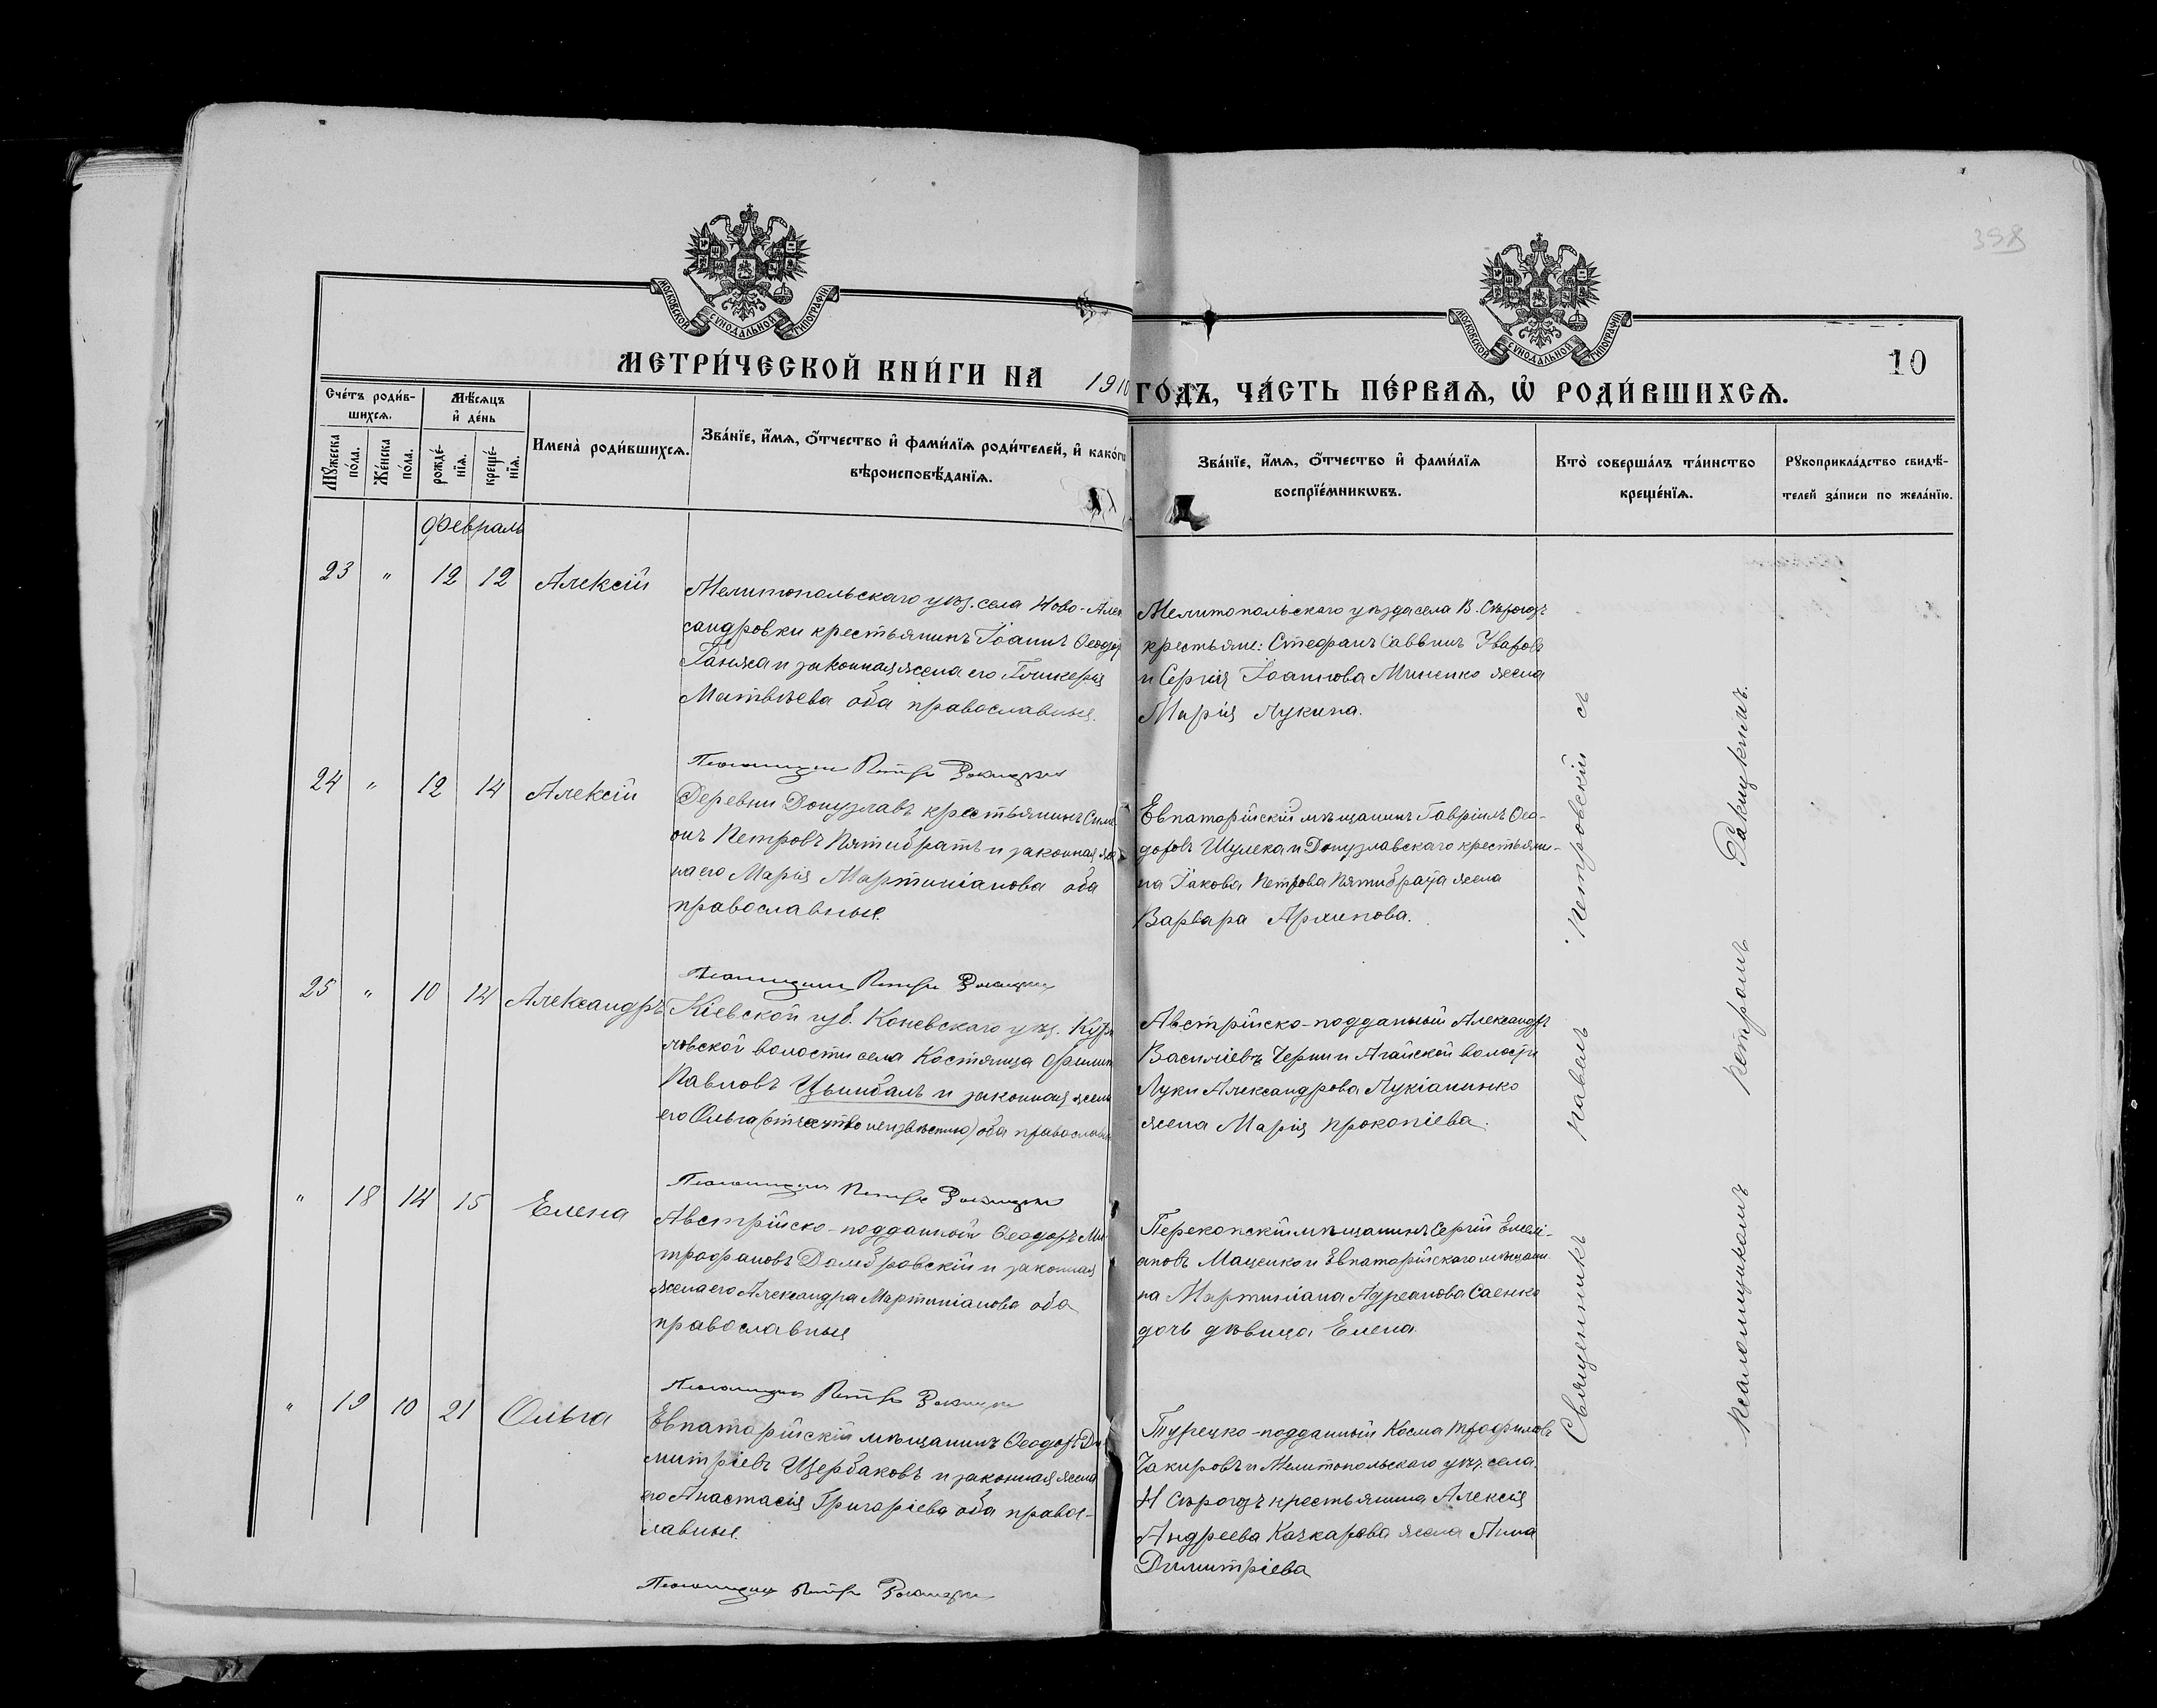 398
МОСКОВСКОЙ СѴНОДАЛЬНОЙ ТИПОГРАФІИ
МОСКОВСКОЙ СѴНОДАЛЬНОЙ ТИПОГРАФІИ
10
МЕТРИ́ЧЕСКОЙ КНИ́ГИ НА 1910
ГО́ДЪ, ЧА́СТЬ ПЕ́РВАѦ, Ѡ҆ РОДИ́ВШИХСѦ.
Сче́тъ роди́в-
шихсѧ.
Мѣ́сѧцъ
и҆ де́нь
Мꙋ́жеска
по́ла.
Же́нска
по́ла.
рожде́-
нїѧ.
креще́-
нїѧ.
Имена̀ роди́вшихсѧ.
Зва́нїе, и҆́мѧ, о҆́тчество и҆ фами́лїѧ роди́телей, и҆ како́гѡ
вѣроисповѣ́данїѧ.
Зва́нїе, и҆́мѧ, о҆́тчество и҆ фами́лїѧ
воспрїе́мникѡвъ.
Кто̀ соверша́лъ та́инство
креще́нїѧ.
Рꙋкоприкла́дство свидѣ́-
телей за́писи по жела́нїю.
Февраль
23 " 12 12 Алексій
Мелитопольскаго уѣз. села Ново-Алек
сандровки крестьянинъ Іоаннъ Ѳеодор
Ганжа и законная жена его Гликерія
Матвѣева оба православные.
Мелитопольскаго уѣзда села В. Сѣрогозъ
крестьяне: Стефанъ Саввинъ Уваровъ
и Сергія Іоаннова Миненко жена
Марія Лукина.
Псаломщикъ Петръ Ракицкій
24 " 12 14 Алексій
Деревни Донузлавъ крестьянинъ Симе
онъ Петровъ Пятибратъ и законная же
на его Марія Мартиніанова оба
православные.
Евпаторійскій мѣщанинъ Гавріилъ Ѳео-
доровъ Шулека и Донузлавскаго крестьяни-
на Іакова Петрова Пятибрата жена
Варвара Архипова.
Псаломщикъ Петръ Ракицкій
25 " 10 14 Александръ
Кіевской губ. Каневскаго уѣз.
ловской волости села Костянца Филип
Павловъ Цымбалъ и законная жена
его Ольга (отчество неизвѣстно) оба православн
Австрійско-подданный Александръ
Василіевъ Черни и Агайской волости
Луки Александрова Лукіаненко
жена Марія Прокопіева.
Псаломщикъ Петръ Ракицкій
" 18 14 15 Елена
Австрійско-подданный Ѳеодоръ Ми
трофановъ Домбровскій и законная
жена его Александра Мартиніанова оба
православные
Перекопскій мѣщанинъ Сергій Емелі-
ановъ Маценко и Евпаторійскаго мѣщани
на Мартиніана Адреанова Саенко
дочь дѣвица Елена.
Псаломщикъ Петръ Ракицкій
" 19 10 21 Ольга
Евпаторійскій мѣщанинъ Ѳеодоръ Ди
митріевъ Щербаковъ и законная жена
его Анастасія Григоріева оба правос-
лавные.
Турецко-подданный Косма Трофимовъ
Чакировъ и Мелитопольскаго уѣз. села
Н Сѣрогозъ крестьянина Алексія
Андреева Качкарова жена Анна
Димитріева
Псаломщикъ Петръ Ракицкій
Священникъ Павелъ Петровскій съ
псаломщикомъ Петромъ Ракицкимъ.